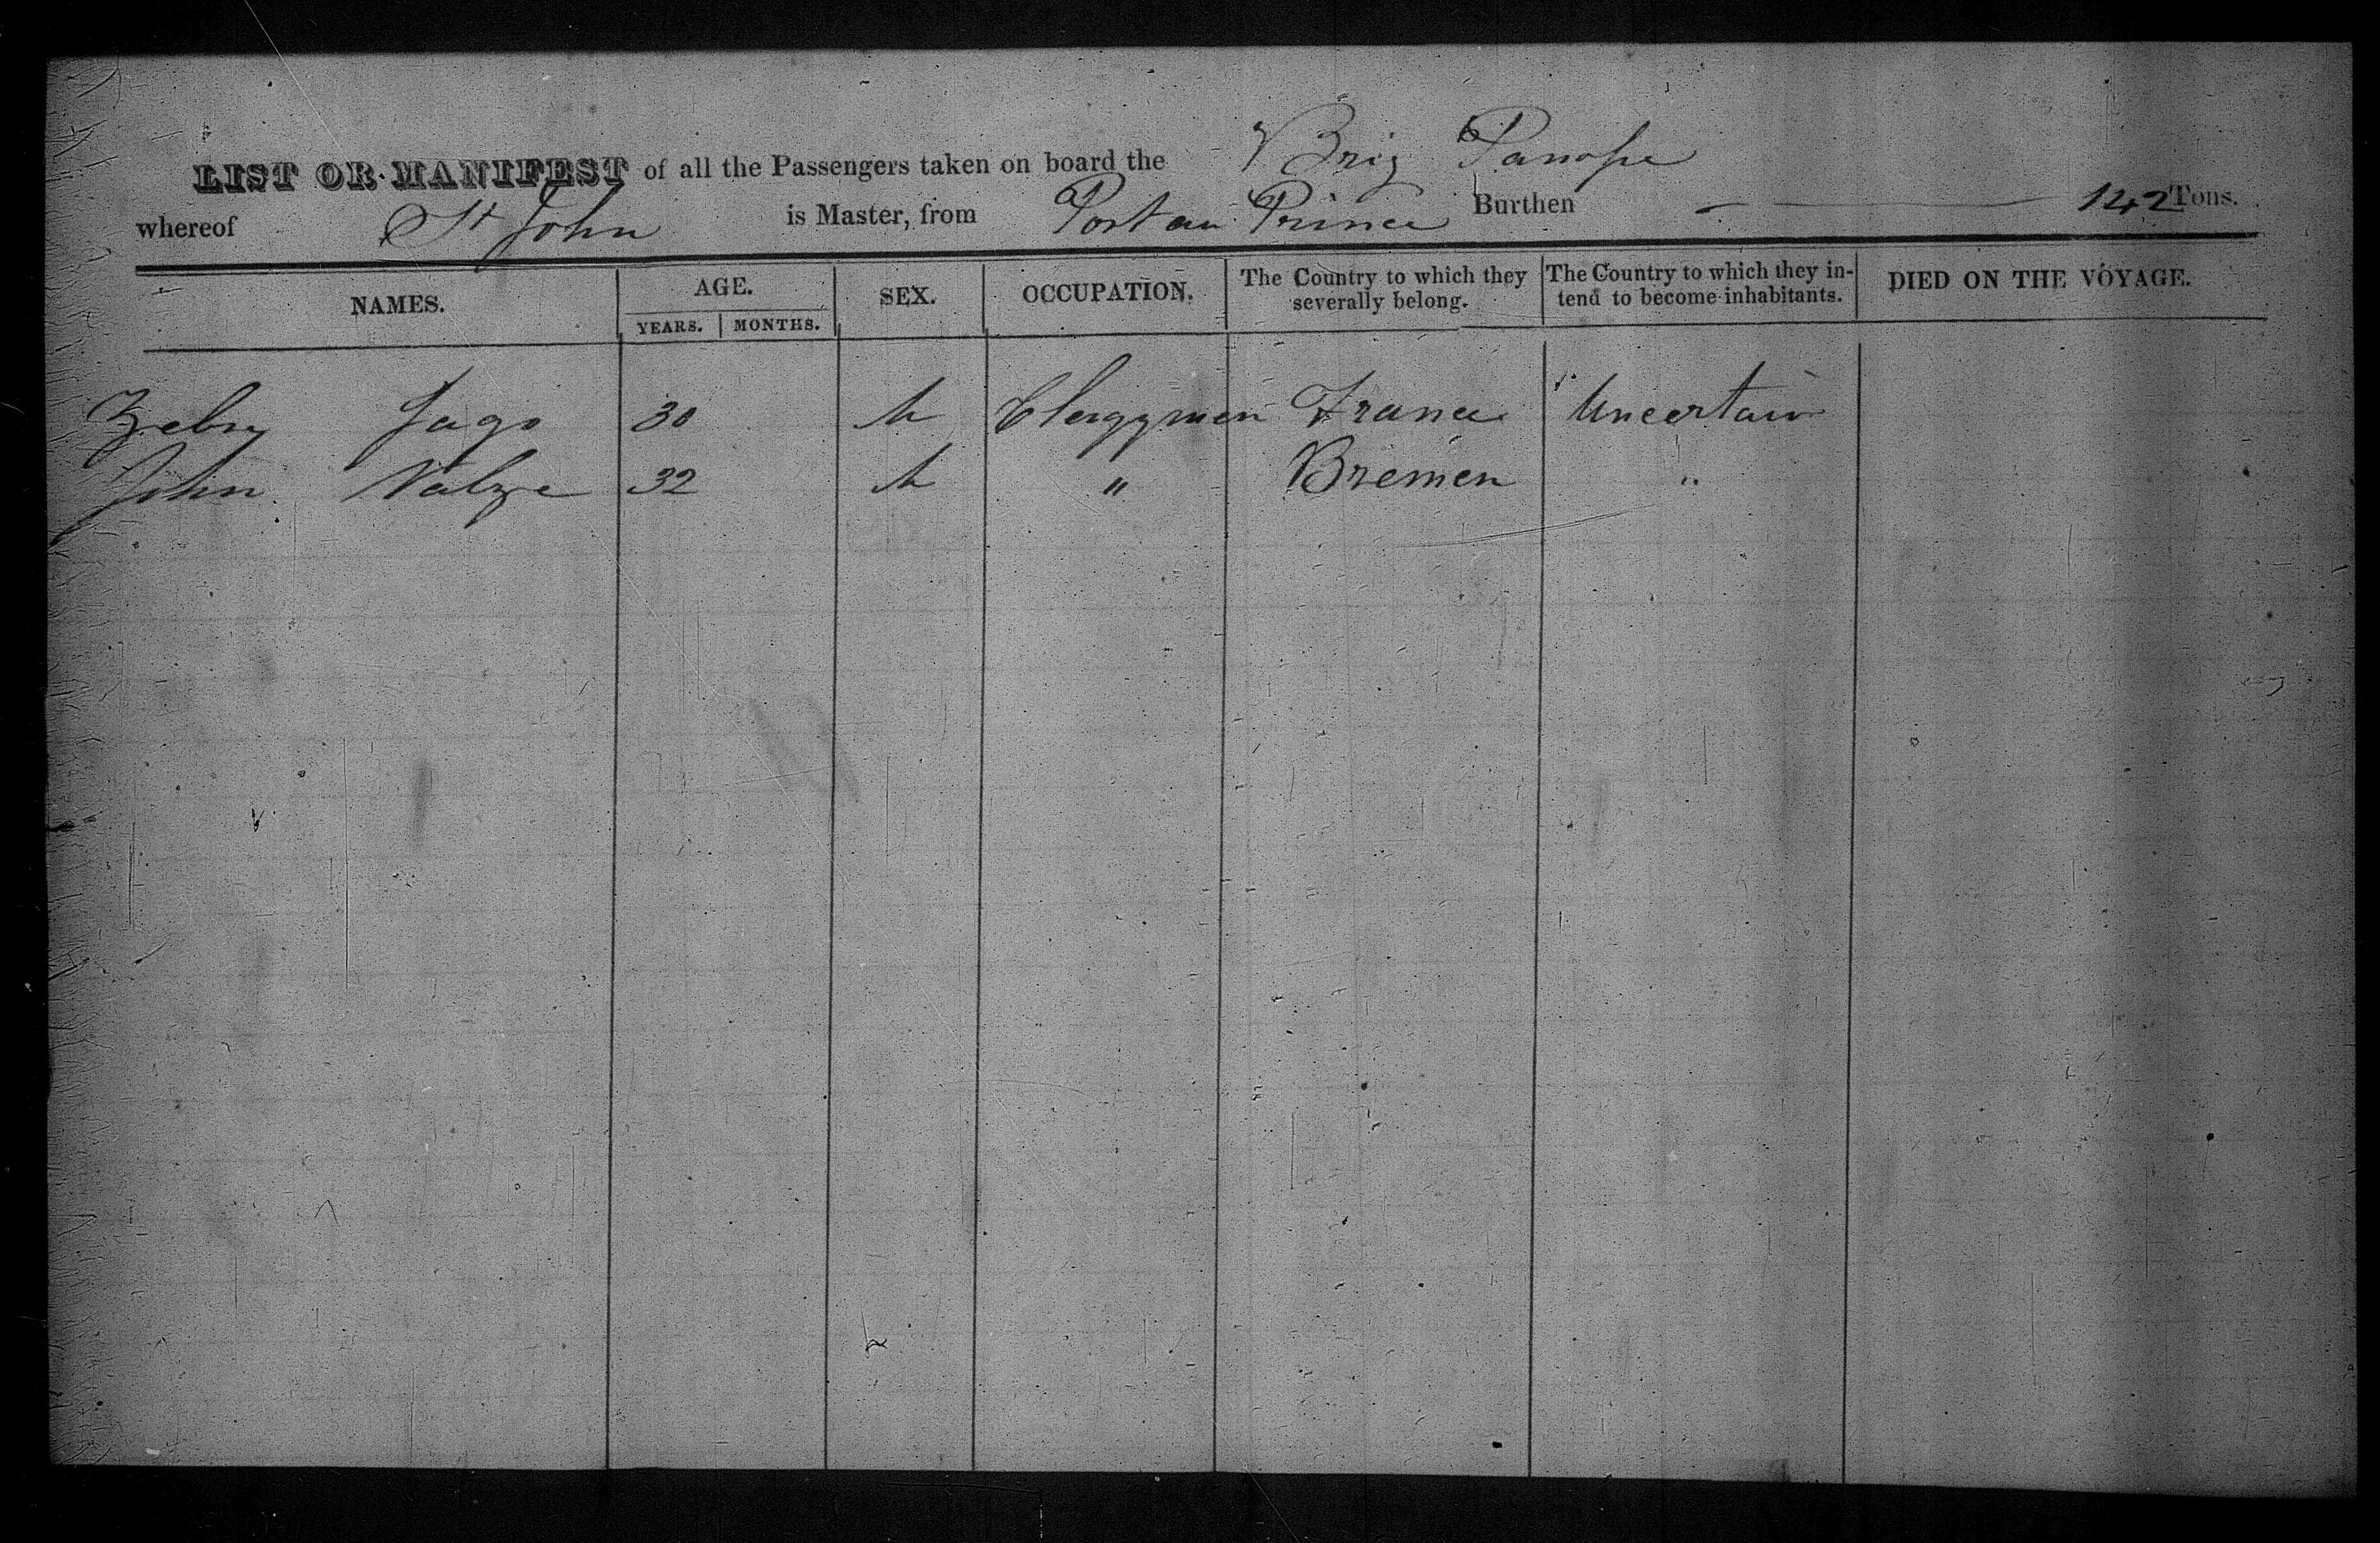 LIST OR MANIFEST of all the Passengers taken on board the Brig Panope
whereof St John is Master, from Port au Prince Burthen 142 Tons.
NAMES. AGE. SEX. OCCUPATION. The Country to which they severally belong. The Country to which they in-tend to become inhabitants. DIED ON THE VOYAGE.
YEARS. MONTHS.
Jago 30 M Clergyman France Uncertain
John 32 M " Bremen "